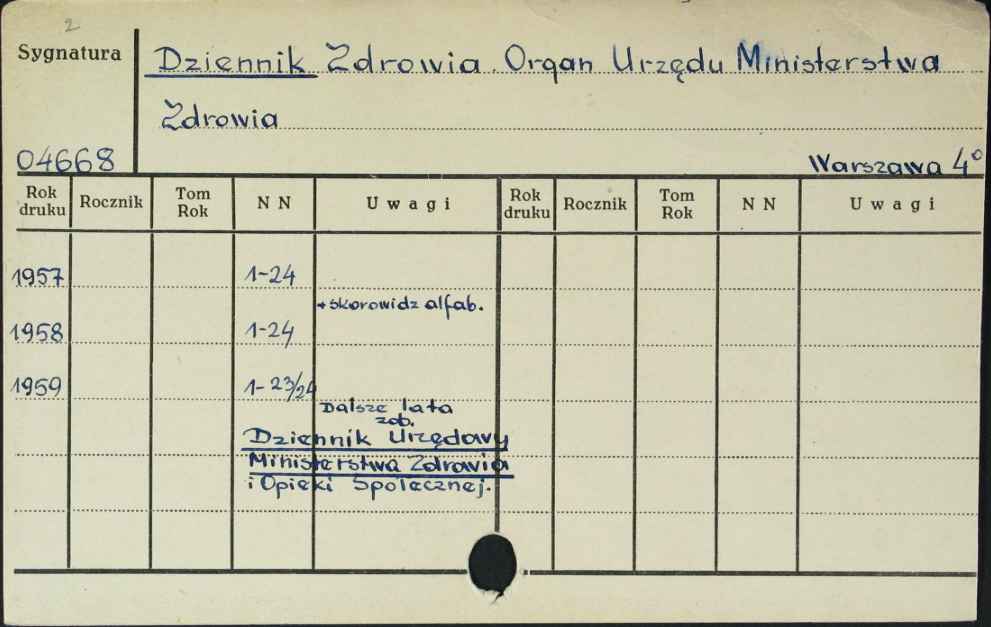 2
Sygnatura
Dziennik Zdrowia. Organ Urzędu Ministerstwa
Zdrowia
04668
Warszawa 4°
Rok druku Rocznik Tom Rok N N Uwagi Rok druku Rocznik Tom Rok N N Uwagi
1957 1-24
+skorowidz alfab.
1958 1-24
1959 1-23/24
Dalsze lata
zob.
Dziennik Urzędowy
Ministerstwa Zdrowia
i Opieki Społecznej.